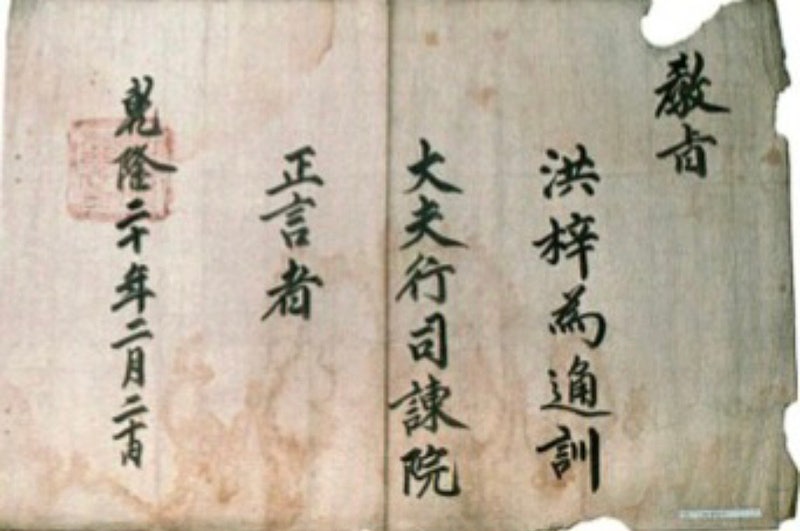 敎旨
洪梓為通訓
大夫行司諫院
正言者
乾隆二十年二月二十日